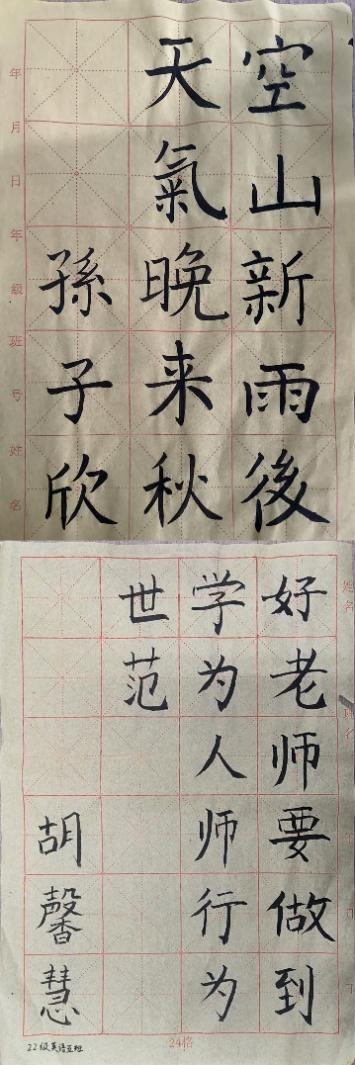 空山新雨後
天氣晚来秋
孫子欣
年 月 日
年 級 班 号 姓 名
好老师要做到
学为人师行为
世范
胡馨慧
姓名
24格
22级英语五班